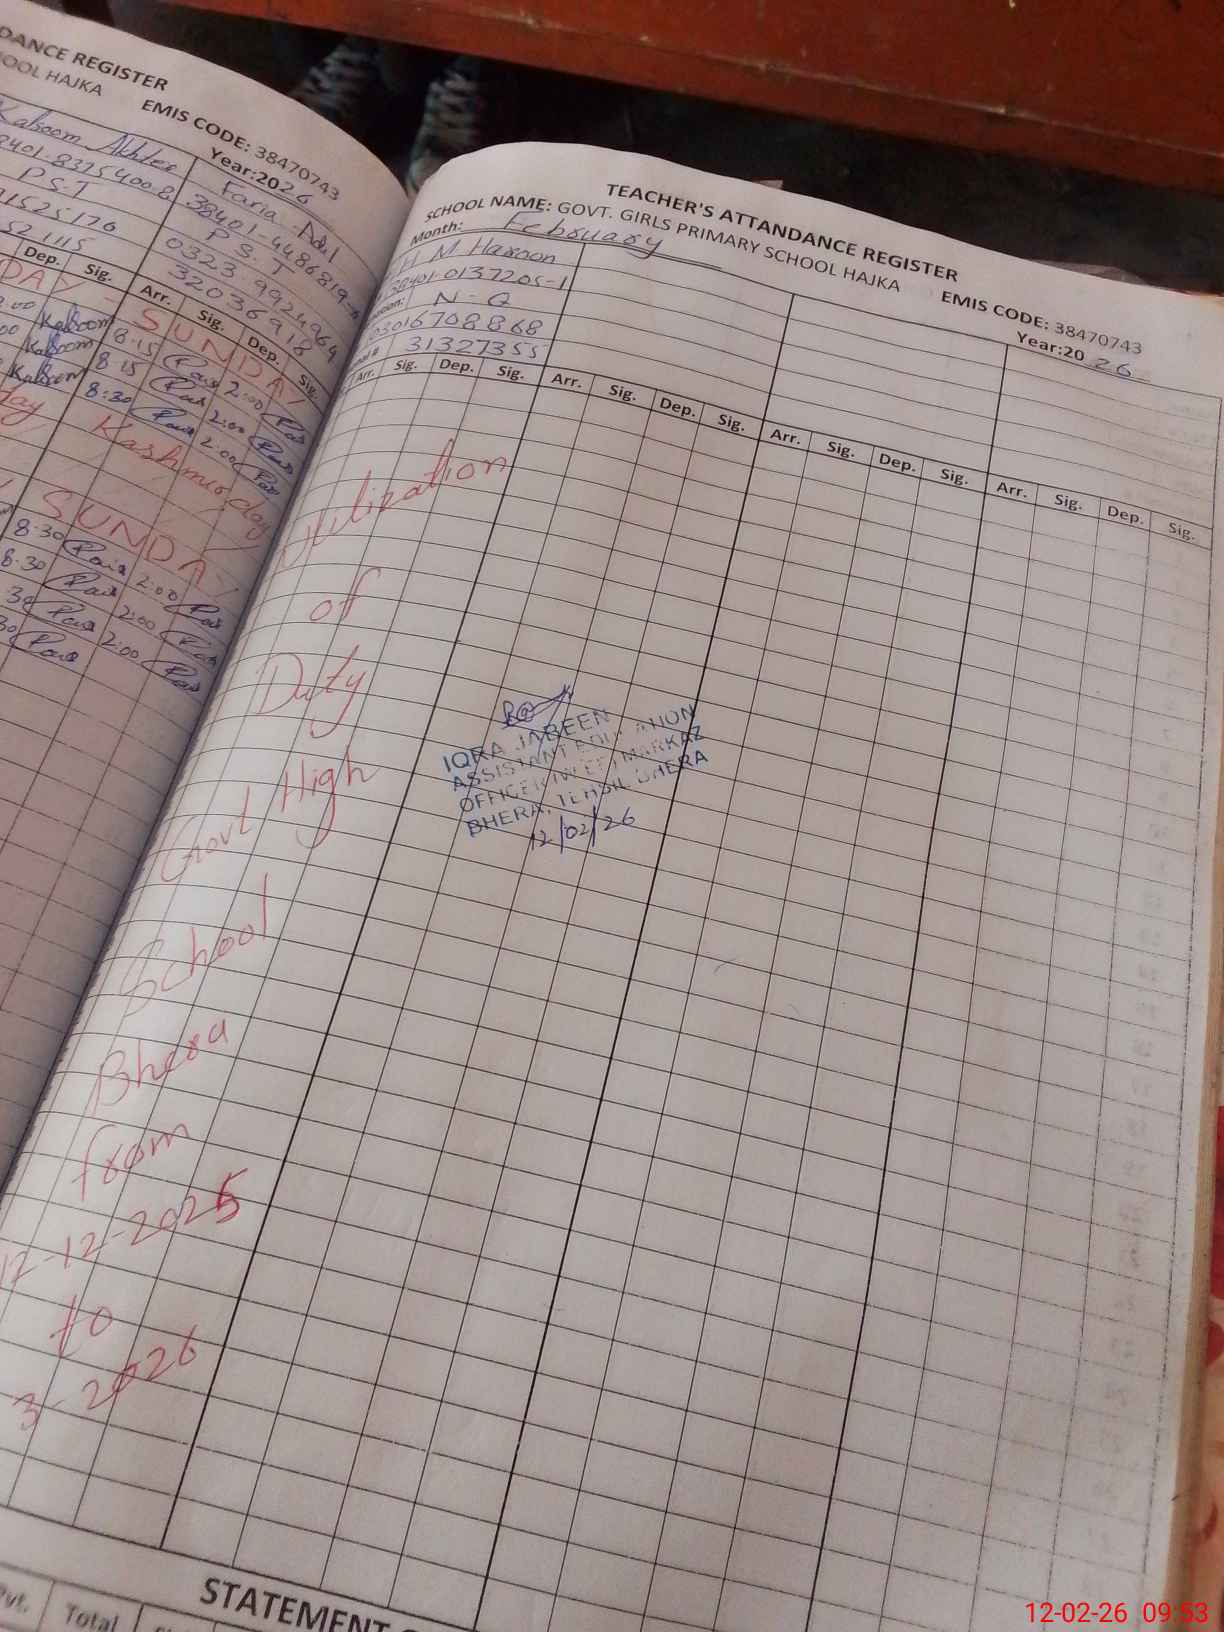 DANCE REGISTER
OOL HAJKA EMIS CODE: 38470743
Year:2026
Kalsoom Akhter Faria Adil
38401-4486819-
P.S.T P.S.T
0323 9924964
52 1115 32036918
Dep. Sig. Arr. Sig. Dep. Sig.
DAY - SUNDAY
Kalsoom 8.15 2:00
Kalsoom 8.15 2:00
Kalsoom 8:30 2.00
day Kashmir day
SUNDA
8.30 2:00
8.30 2:00
30 2:00
30
TEACHER'S ATTANDANCE REGISTER
SCHOOL NAME: GOVT. GIRLS PRIMARY SCHOOL HAJKA EMIS CODE: 38470743
Month: February Year:20 26
H M Haroon
38401-0137205-1
N-Q
03016708868
31327355
Arr. Sig. Dep. Sig. Arr. Sig. Dep. Sig. Arr. Sig. Dep. Sig. Arr. Sig. Dep. Sig.
Utilization
of
Duty
Govt High
School
Bhera
from
12-12-2025
to
3-2026
IQRA JABEEN
ASSISTANT EDUCATION
OFFICER (W-EE) MARKAZ
BHERA, TEHSIL BHERA
12/02/26
STATEMENT
Pvt. Total
12-02-26 09:53